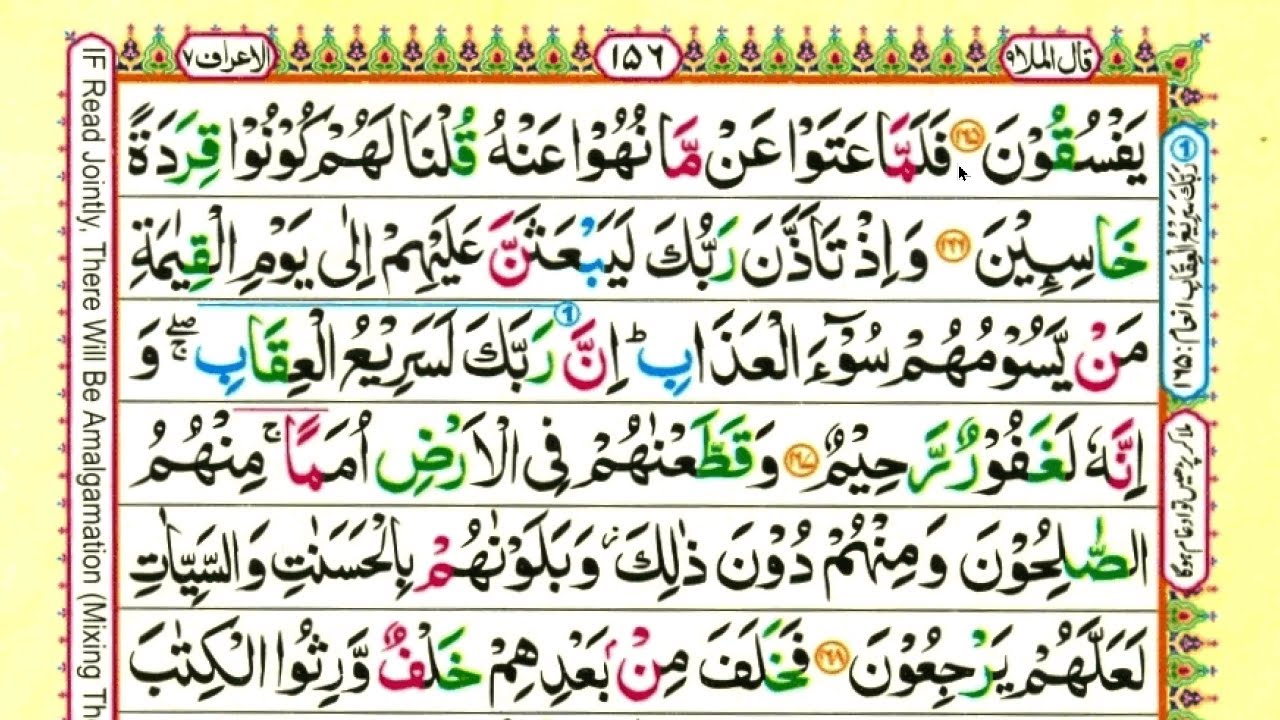 قال الملا ٩
١٥٦
الاعراف ٧
يَفْسُقُوْنَ ﴿۱۶۵﴾ فَلَمَّا عَتَوْا عَنْ مَّا نُهُوْا عَنْهُ قُلْنَا لَهُمْ كُوْنُوْا قِرَدَةً
خَاسِـِٕيْنَ ﴿۱۶۶﴾ وَ اِذْ تَاَذَّنَ رَبُّكَ لَيَبْعَثَنَّ عَلَيْهِمْ اِلٰى يَوْمِ الْقِيٰمَةِ
مَنْ يَّسُوْمُهُمْ سُوْٓءَ الْعَذَابِ ؕ اِنَّ رَبَّكَ لَسَرِيْعُ الْعِقَابِ ۖۚ وَ
اِنَّهٗ لَغَفُوْرٌ رَّحِيْمٌ ﴿۱۶۷﴾ وَ قَطَّعْنٰهُمْ فِى الْاَرْضِ اُمَمًا ۚ مِنْهُمُ
الصّٰلِحُوْنَ وَ مِنْهُمْ دُوْنَ ذٰلِكَ ؗ وَ بَلَوْنٰهُمْ بِالْحَسَنٰتِ وَ السَّيِّاٰتِ
لَعَلَّهُمْ يَرْجِعُوْنَ ﴿۱۶۸﴾ فَخَلَفَ مِنْۢ بَعْدِهِمْ خَلْفٌ وَّرِثُوا الْكِتٰبَ
① رَبَّكَ سَرِيْعُ الْعِقَابِ انعام ۱۶۵:
ملا کر پڑھیں تو ادغام ہوگا
IF Read Jointly, There Will Be Amalgamation (Mixing The